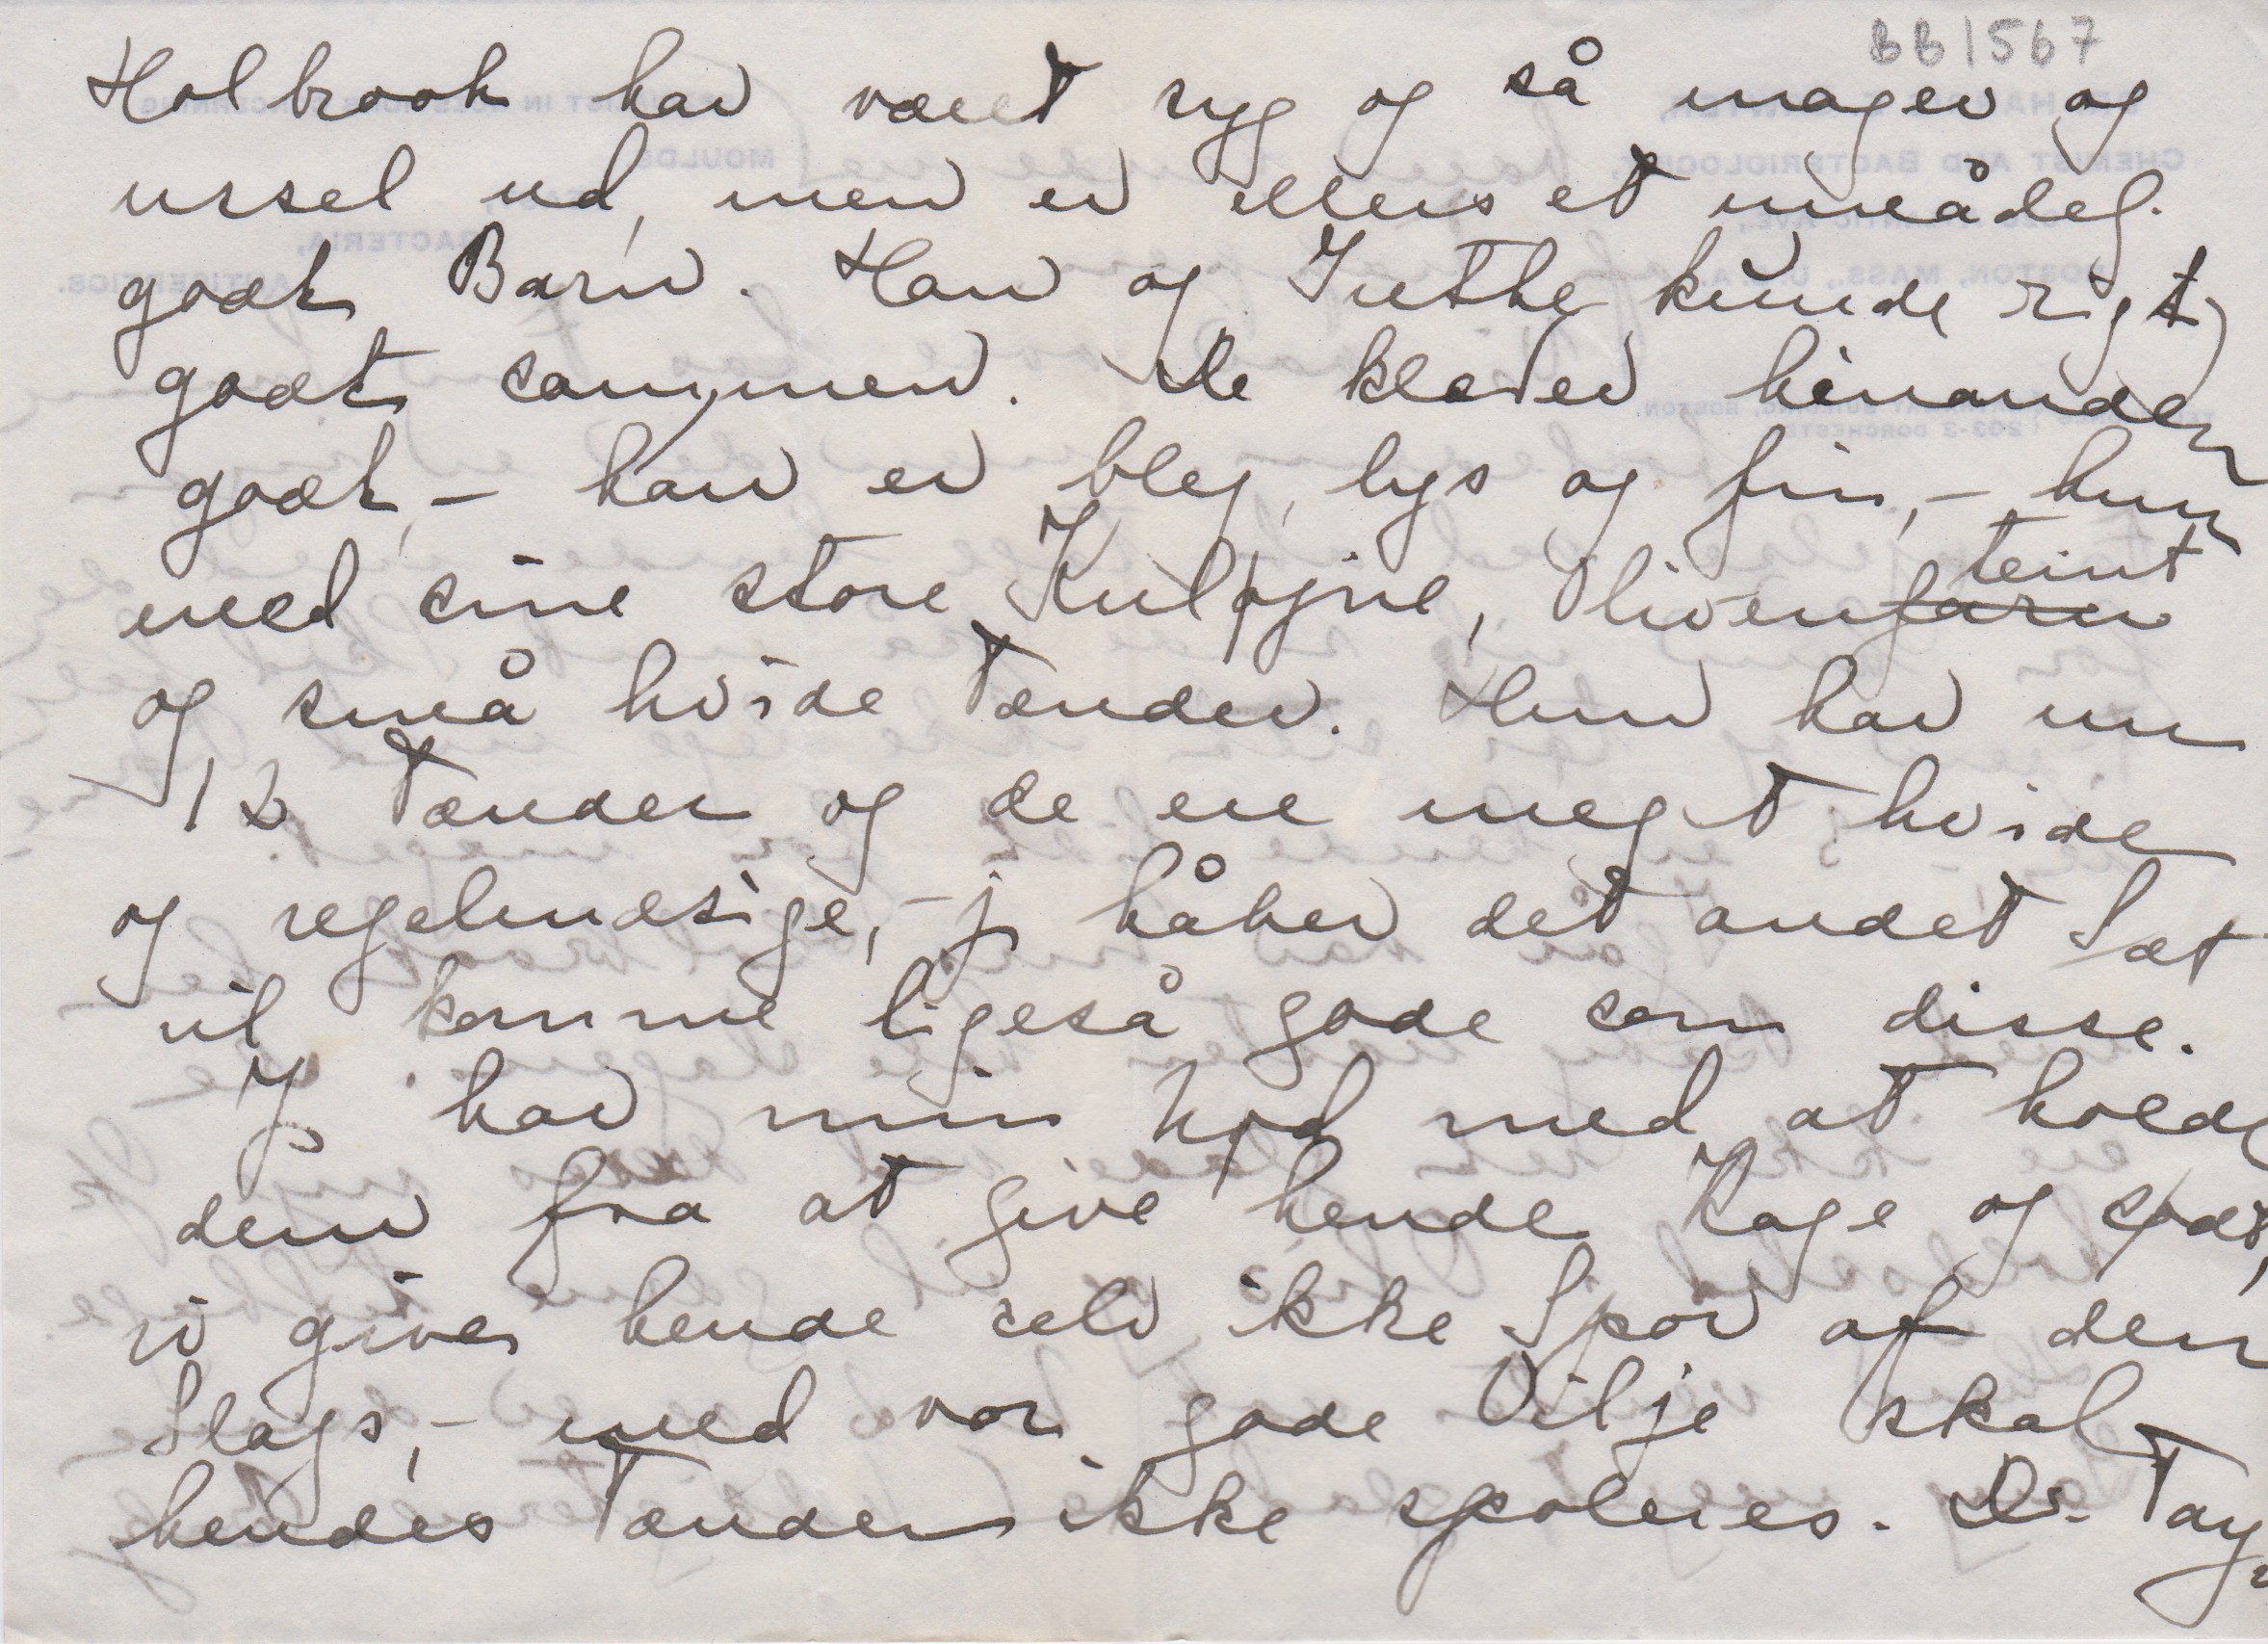 BB1567
Holbrook har været syg og så mager og
ussel ud, men er ellers et umådel.
godt Barn. Han og Inthe kunde rigt
godt sammen. De klæder hinanden
godt, - han er bleg, lys og fin, - hun
med sine store Kuløjne, Olivenfarve teint
og små hvide Tænder. Hun har nu
12 Tænder og de ere meget hvide
og regelmæsige, - jg håber det andet Sæt
vil komme ligeså gode som disse.
Jg har min Nød med at holde
dem fra at give hende Kage og sødt,
vi giver hende selv ikke Spor af den
Slags, - med vor gode Vilje skal
hendes Tænder ikke spoleres. Dr. Tay